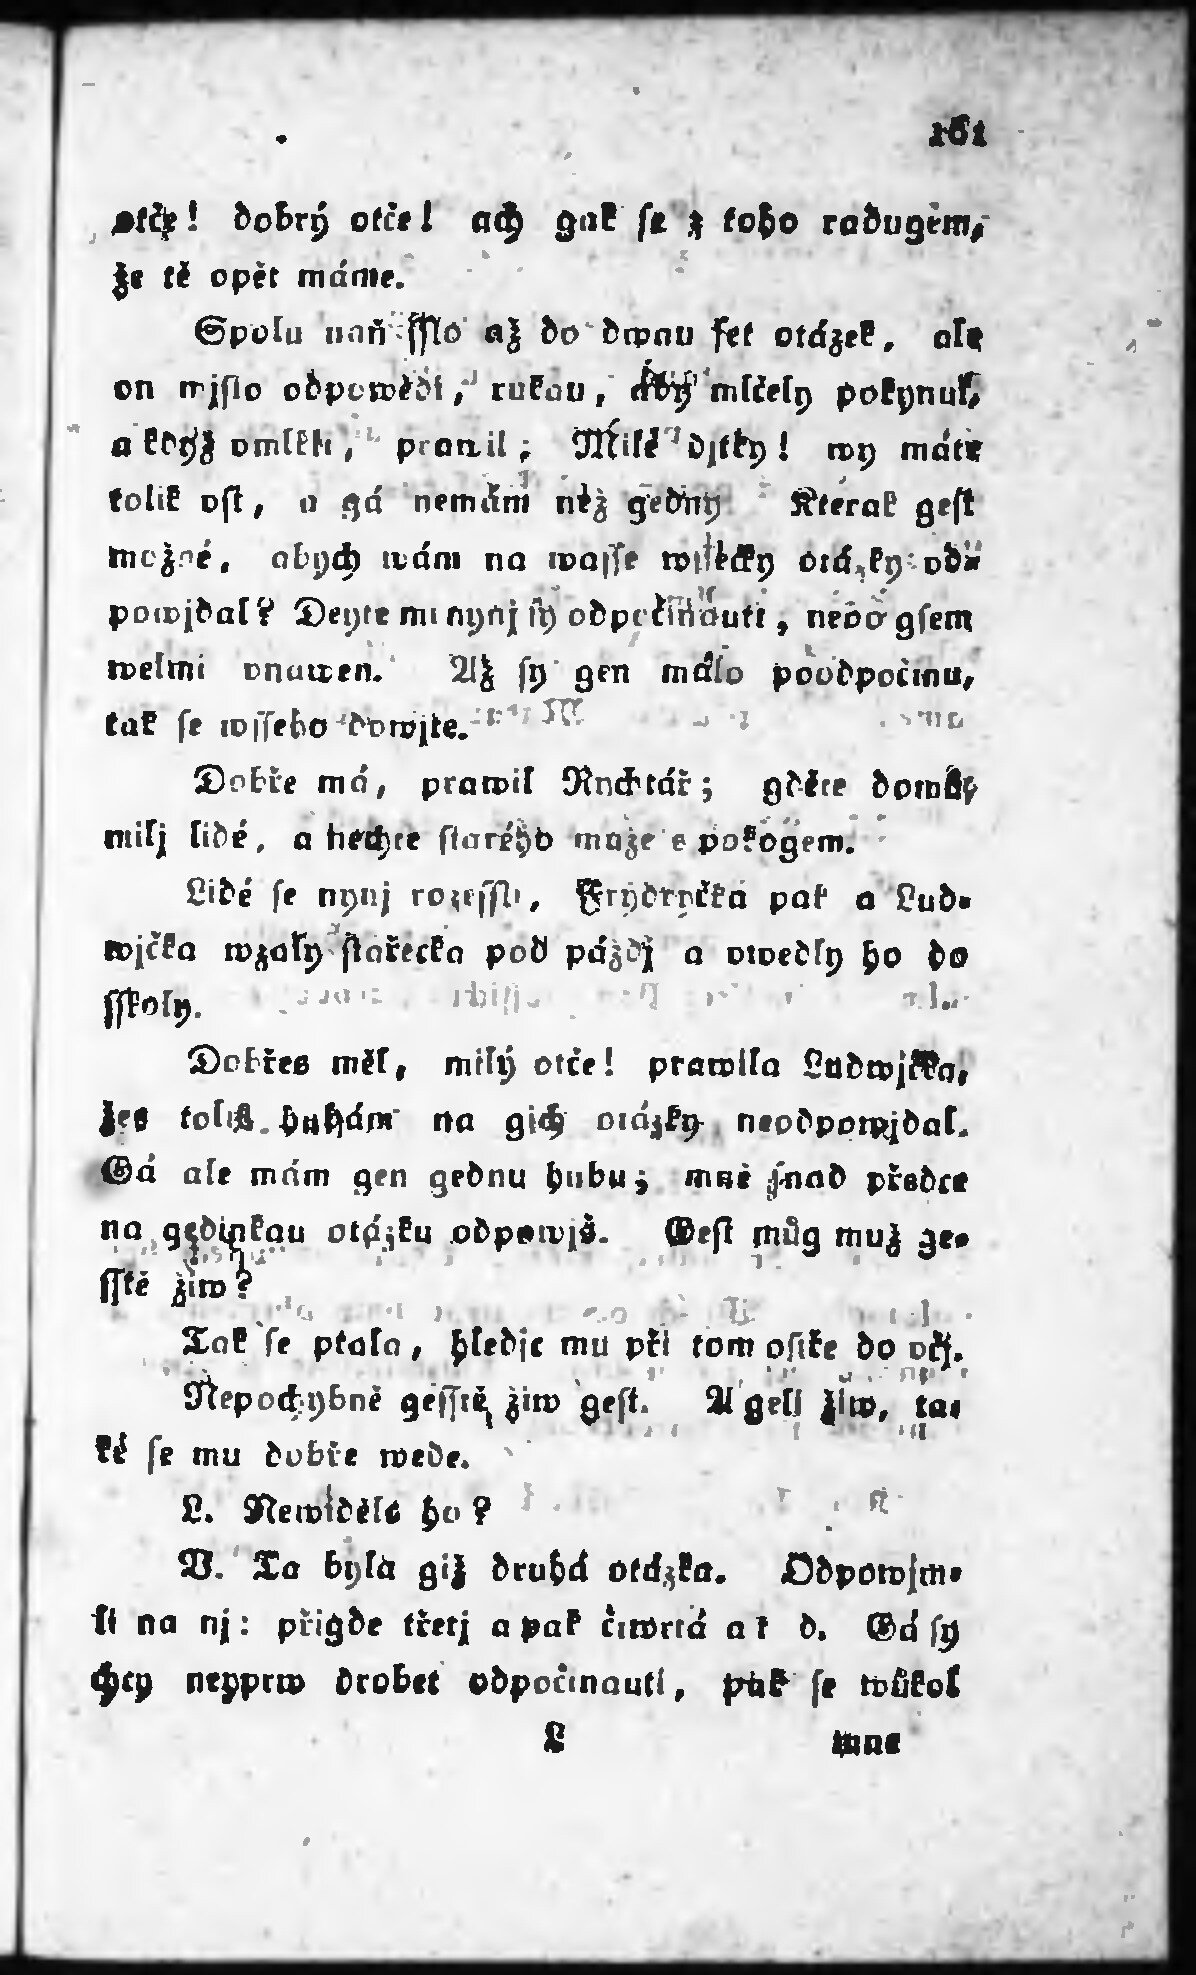 161
otče! dobrý otče! ach gak se z toho radugem,
že tě opět máme.
Spolu naň sslo až do dwau set otázek, ale
on mjsto odpowědi, rukau, aby mlčely pokynul,
a když vmlkli, prawil: Milé djtky! wy máte
tolik vst, a gá nemám než gedny. Kterak gest
možné, abych wám na wasse wssecky otázky od-
powjdal? Deyte mi nynj sy odpočinauti, nebo gsem
welmi vnawen. Až sy gen málo poodpočinu,
tak se wsseho dowjte.
Dobře má, prawil Rychtář; gděte domů,
milj lidé, a nechte starého muže s pokogem.
Lidé se nynj rozessli, Frydryčka pak a Lud-
wjčka wzaly stařečka pod páždj a vwedly ho do
sskoly.
Dobřes měl, milý otče! prawila Ludwjčka,
žes tolik hubám na gich otázky neodpowjdal.
Gá ale mám gen gednu hubu; mně snad předce
na gedinkau otázku odpowjš. Gest můg muž ge-
sstě žiw?
Tak se ptala, hledjc mu při tom ostře do očj.
Nepochybně gesstě žiw gest. A gelí žiw, ta-
ké se mu dobře wede.
L. Newiděls ho?
V. To byla giž druhá otázka. Odpowjm-
li na nj: přigde třetj a pak čtwrtá a t d. Gá sy
chcy neyprw drobet odpočinauti, pak se wůkol
L mne